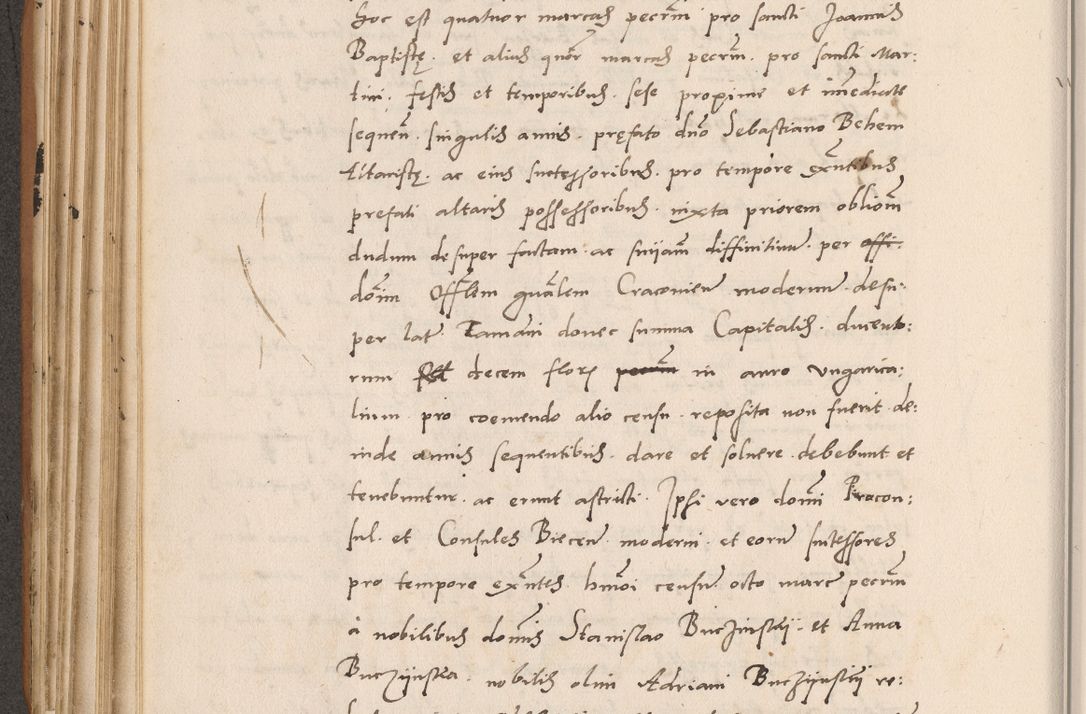 hoc est quatuor marcas pecrm pro sancti Joannis
Baptistę. et alias quor marcas pecrm. pro sancti Mar:
tini. festis et temporibus. sese proxime et imediate
sequen. singulis annis. pręfato dno Sebastiano Behem
Altaristę. ac eius successoribus. pro tempore exntibus
prefati altaris possessoribus. iuxta priorem obliom
dudum desuper factam. ac sniiam diffinitiuu. per offi:
dom Offlem gnalem Cracouien modernu desu:
per lat. Tamdiu donec summa Capitalis. ducento:
rum decem flor in auro vngarica:
lium pro coemendo alio censu. reposita non fuerit. de:
inde annis sequentibus. dare et soluere. debebunt et
tenebuntur. ac erunt astricti. Ipsi vero domi Procon:
sul. et Consules Biecen moderni. et eoru successores
pro tempore exntes. hmoi censu octo marc pecrm
à nobilibus domis Stanislao Buczinskij. et Anna
Buczijnska. nobilis olim Adriani Buczijnskij re: